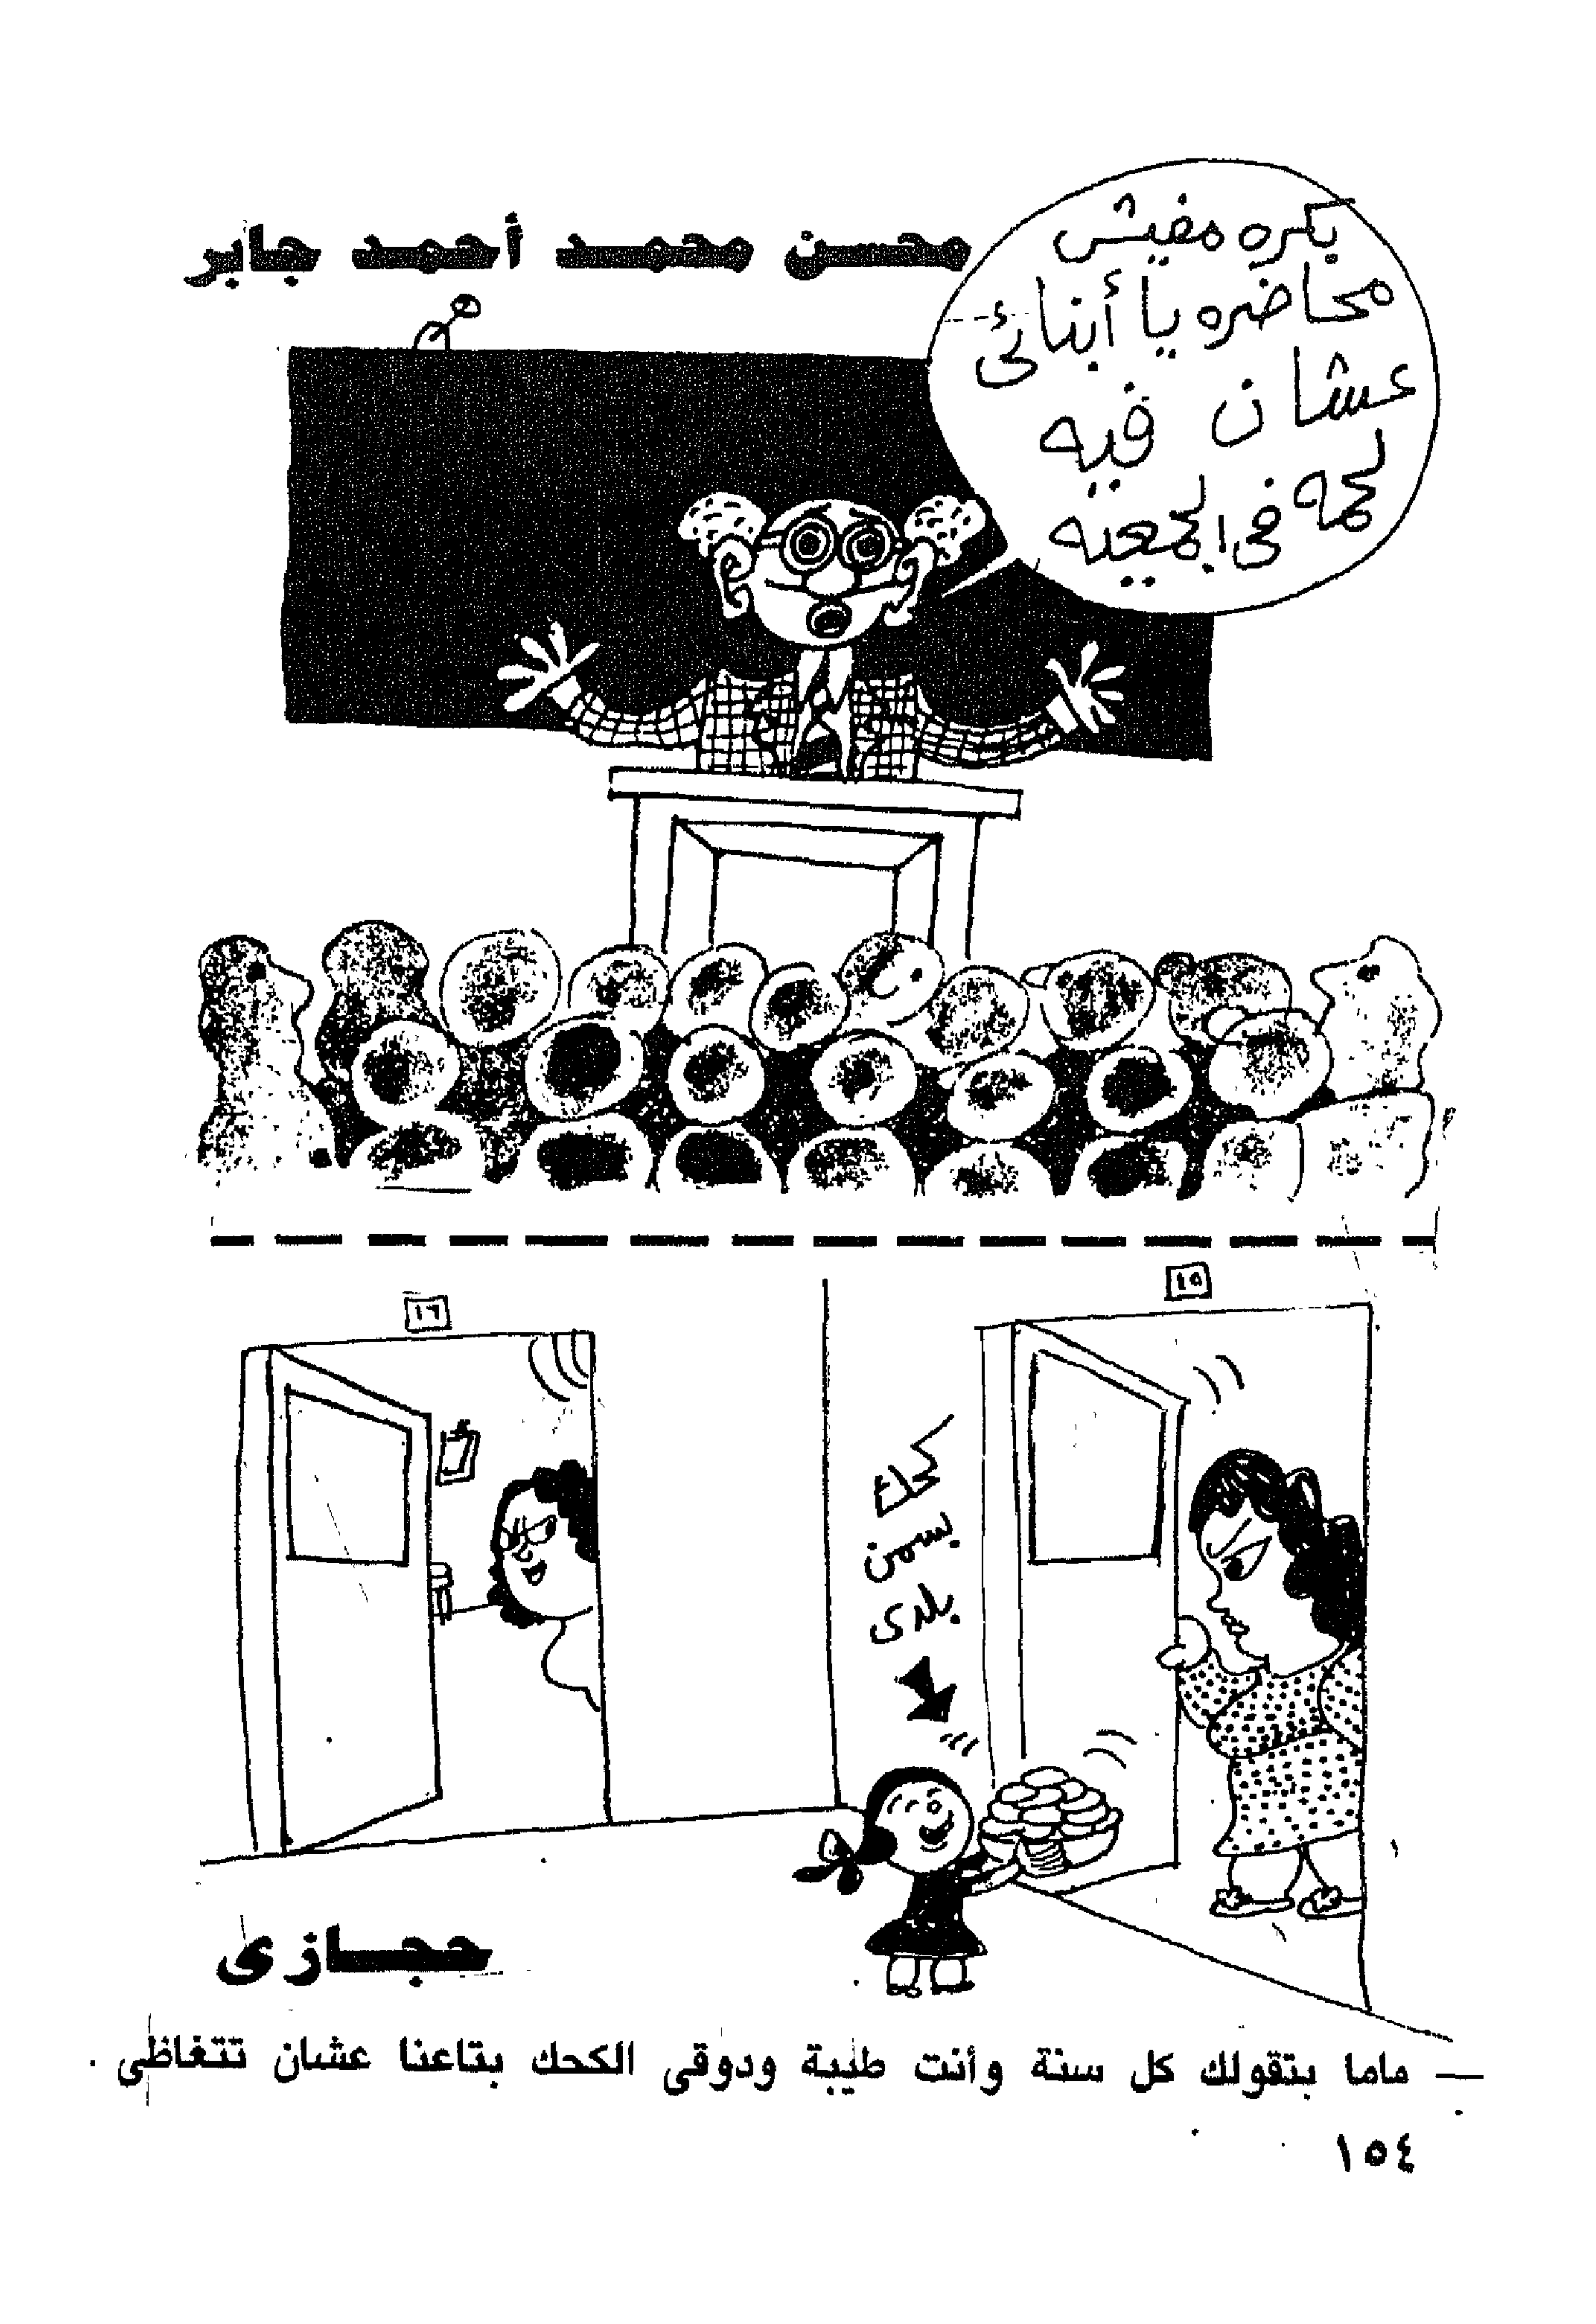 محسن محمد أحمد جابر
بكره مفيش
محاضره يا أبنائى
عشان فيه
لحمه
فى الجمعيه
١٥
١٦
كحك
بسمن
بلدى
حجازى
— ماما بتقولك كل سنة وأنت طيبة ودوقى الكحك بتاعنا عشان تتغاظى .
١٥٤